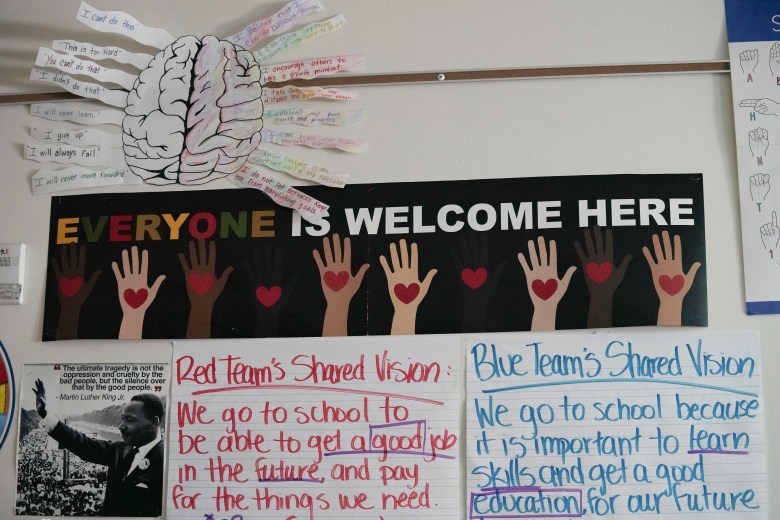 I can't do this
"This is too hard"
"You can't do that"
"I didn't do that"
I will never learn.
"I give up"
"I will always fail."
"I will never move forward."
I encourage others to
have a growth mindset
I can
I do not let setbacks keep
me from
goals
EVERYONE IS WELCOME HERE
A
H
N
T
S
"The ultimate tragedy is not the
oppression and cruelty by the
bad people, but the silence over
that by the good people."
- Martin Luther King Jr.
Red Team's Shared Vision:
We go to school to
be able to get a good job
in the future, and pay
for the things we need.
Blue Team's Shared Vision
We go to school because
it is important to learn
skills and get a good
education, for our future